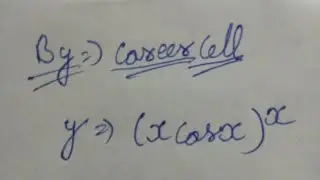 By => Career Cell
y => (x cosx)^x